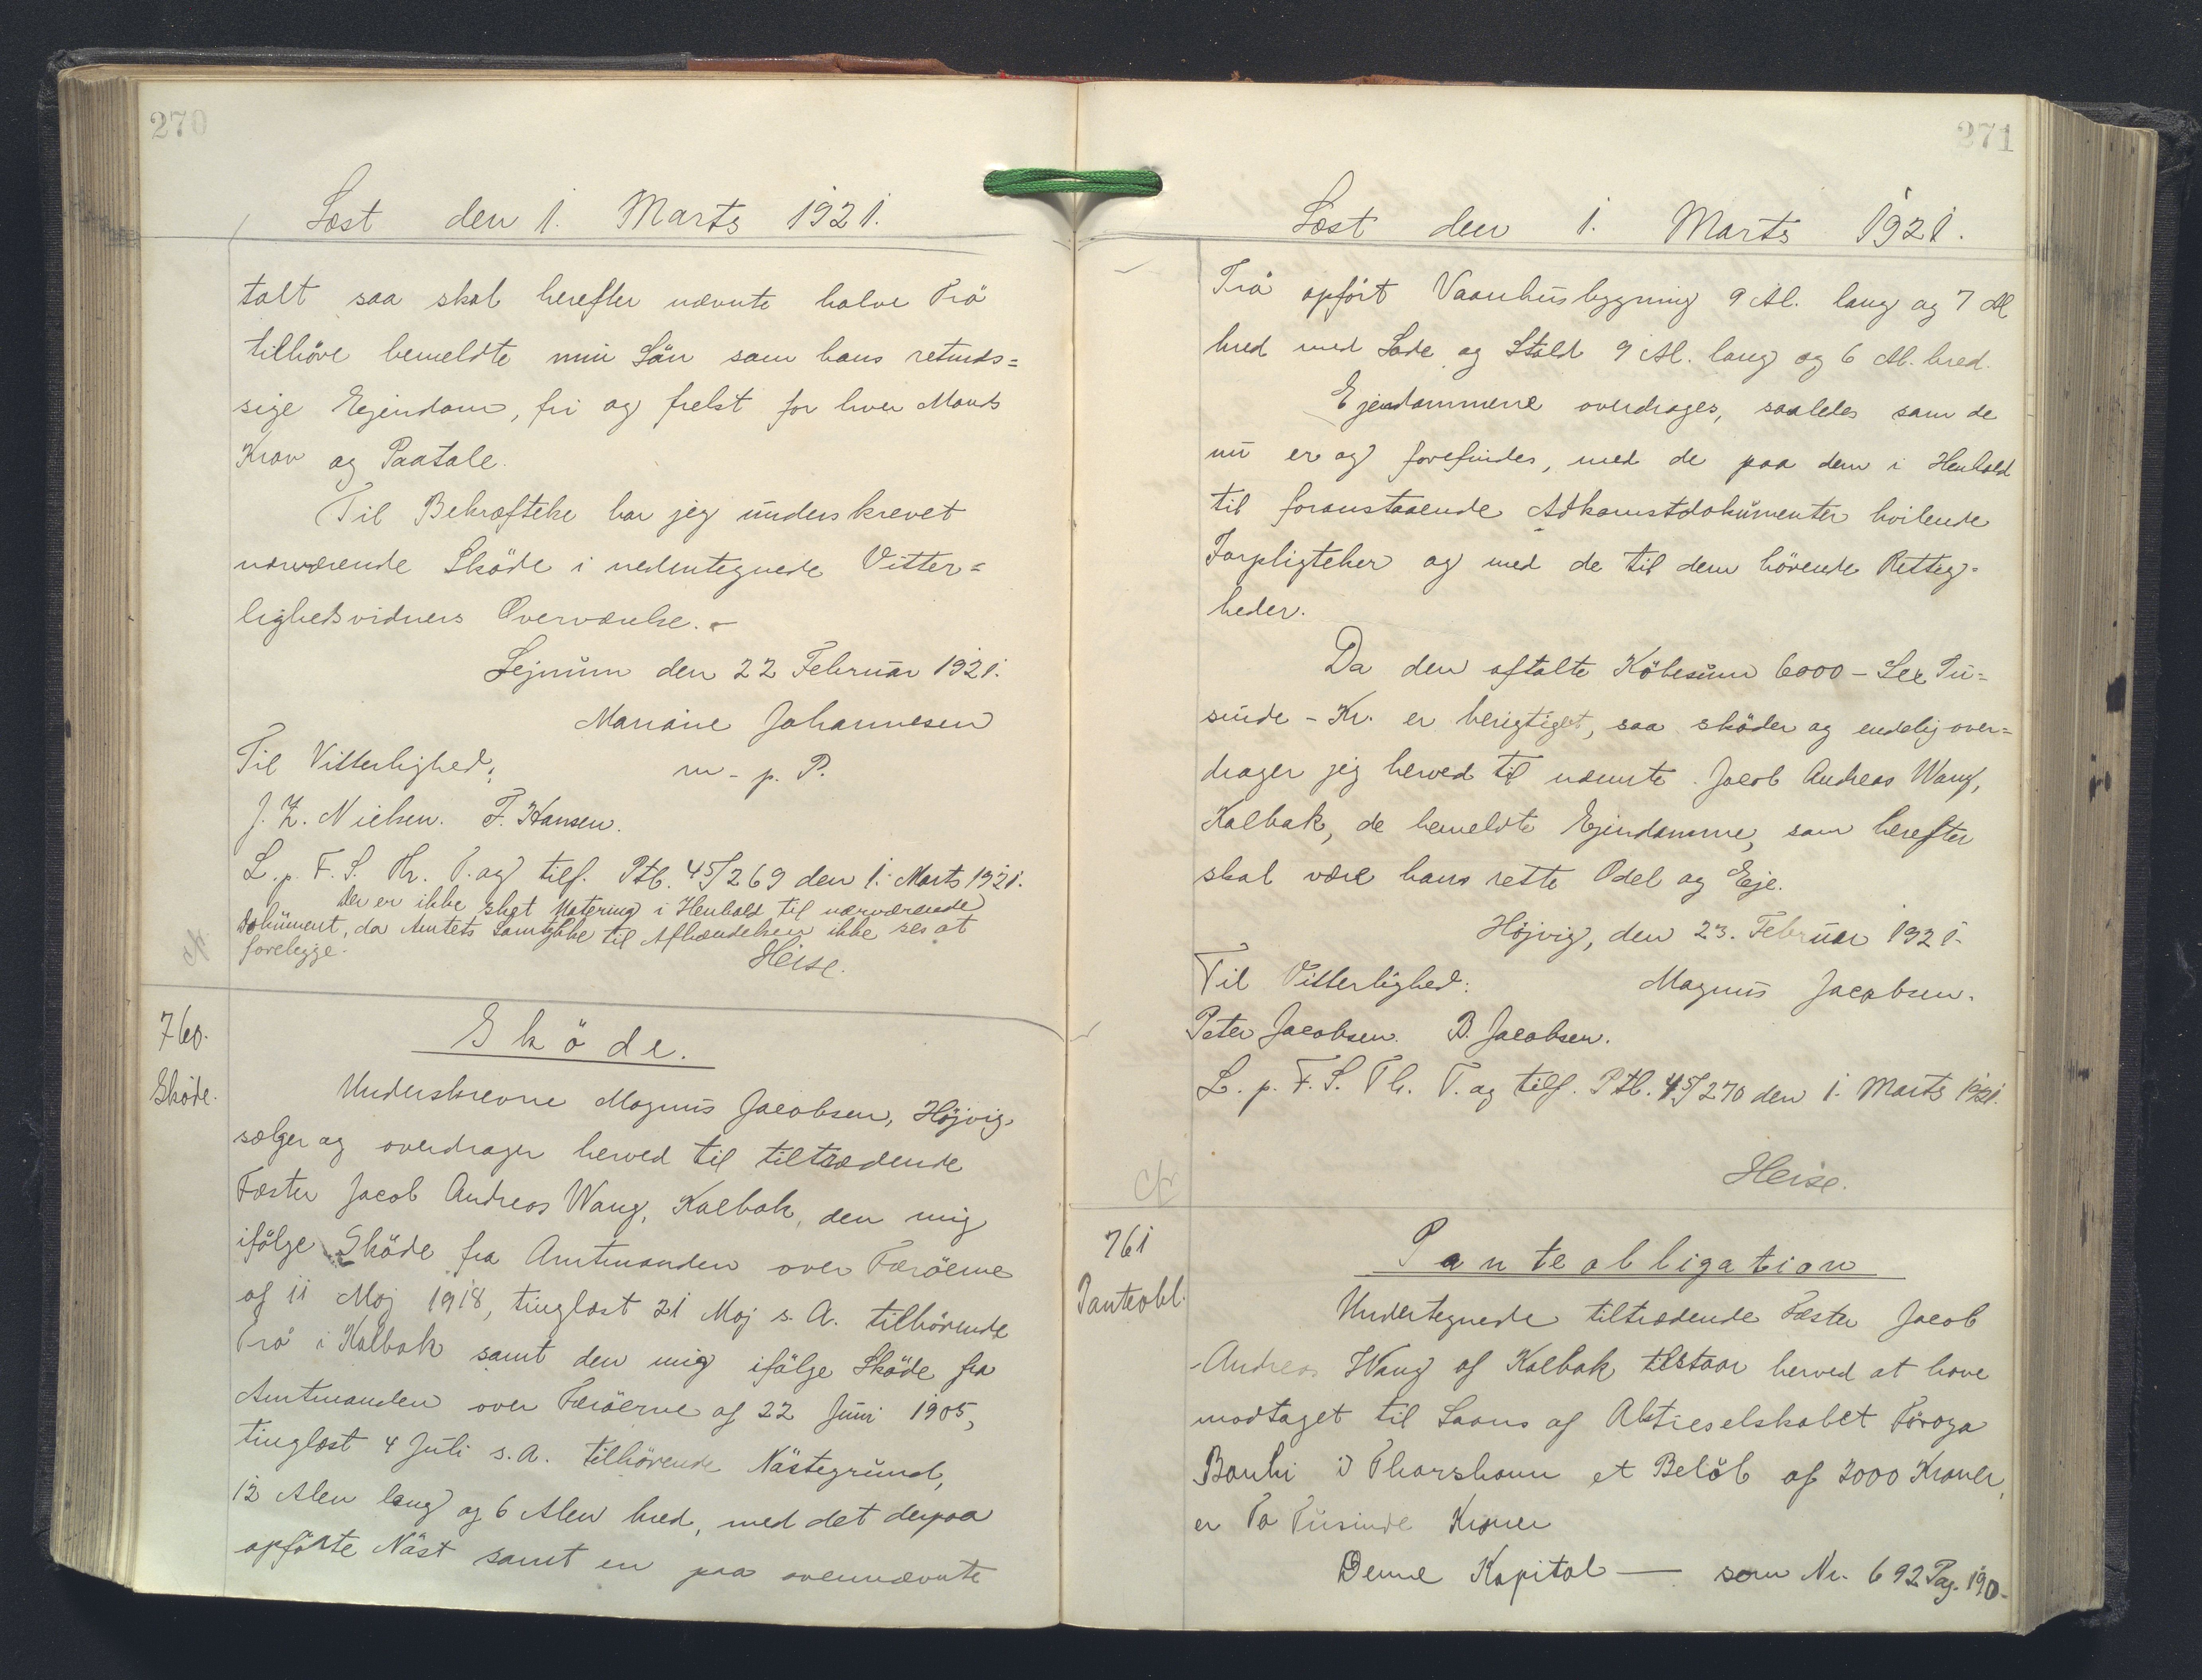 270
Læst den 1. Marts 1921.
talt saa skal herefter nævnte halve Trö
tilhöre bemeldte min Sön som hans retmds=
sige Ejendom, fri og frelst for hver Mands
Krav og Paatale.
Til Bekræftelse har jeg underskrevet
nærværende Sköde i nedentegnede Vitter=
lighedsvidners Overværelse. -
Sejnum den 22 Februar 1921.
Mariane Johannesen
m - p. P.
Til Vitterlighed:
J. Z. Nielsen. F. Hansen.
L. p. F. S. Th. T. og tilf. Ptb. 45/269 den 1. Marts 1921.
Der er ikke sket Notering i Henhold til nærværende
Dokument, da Amtets Samtykke til Afhændelsen ikke ses at
forelegge.
Heise.
760.
Sköde.
Sköde.
Underskrevne Magnus Jacobsen, Höjvig,
sælger og overdrager herved til tiltrædende
Fæster Jacob Andreas Wang, Kalbak, den mig
ifölge Sköde fra Amtmanden over Færöerne
af 11 Maj 1918, tinglæst 21 Maj s. A. tilhörende
Trö i Kalbak samt den mig ifölge Sköde fra
Amtmanden over Færöerne af 22 Juni 1905,
tinglæst 4 Juli s. A. tilhörende Nästegrund,
12 Alen lang og 6 Alen bred, med det derpaa
opförte Näst samt en paa ovennævnte
271
Læst den 1. Marts 1921.
Trö opfört Vaanhusbygning 9 Al. lang og 7 Al
bred med Lade og Stald 9 Al. lang og 6 Al. bred.
Ejendommene overdrages, saaledes som de
nu er og forefindes, med de paa dem i Henhold
til foranstaaende Adkomstdokumenter hvilende
Forpligtelser og med de til dem hörende Rettig-
heder.
Da den aftalte Köbesum 6000 - Sex Tu=
sinde - Kr. er berigtiget, saa sköder og endelig over=
drager jeg herved til nævnte Jacob Andreas Wang,
Kalbak, de bemeldte Ejendomme, som herefter
skal være hans rette Odel og Eje.
Höjvig, den 23. Februar 1921.
Til Vitterlighed:
Magnus Jacobsen.
Peter Jacobsen. B. Jacobsen.
L. p. F. S. Th. T. og tilf. Ptb. 45/270 den 1. Marts 1921.
Heise.
cfr
761
Panteobl.
Panteobligation
Undertegnede tiltrædende Fæster Jacob
Andreas Wang af Kalbak tilstaar herved at have
modtaget til Laans af Aktieselskabet Föroya
Banki i Thorshavn et Belöb af 2000 Kroner,
er To Tusinde Kroner
Denne Kapital — som Nr. 692 Pag. 190.